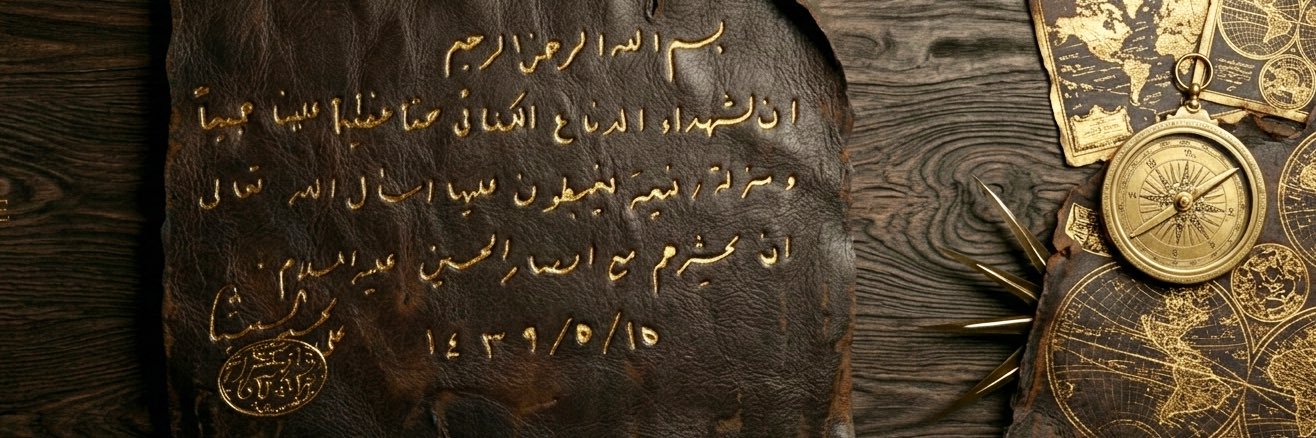 بسم الله الرحمن الرحيم
ان لشهداء الدفاع الكفائي حقا عظيما علينا جميعاً
ومنزلة رفيعة يغبطون عليها اسأل الله تعالى
ان يحشرهم مع انصار الحسين عليه السلام.
١٤٣٩/٥/١٥